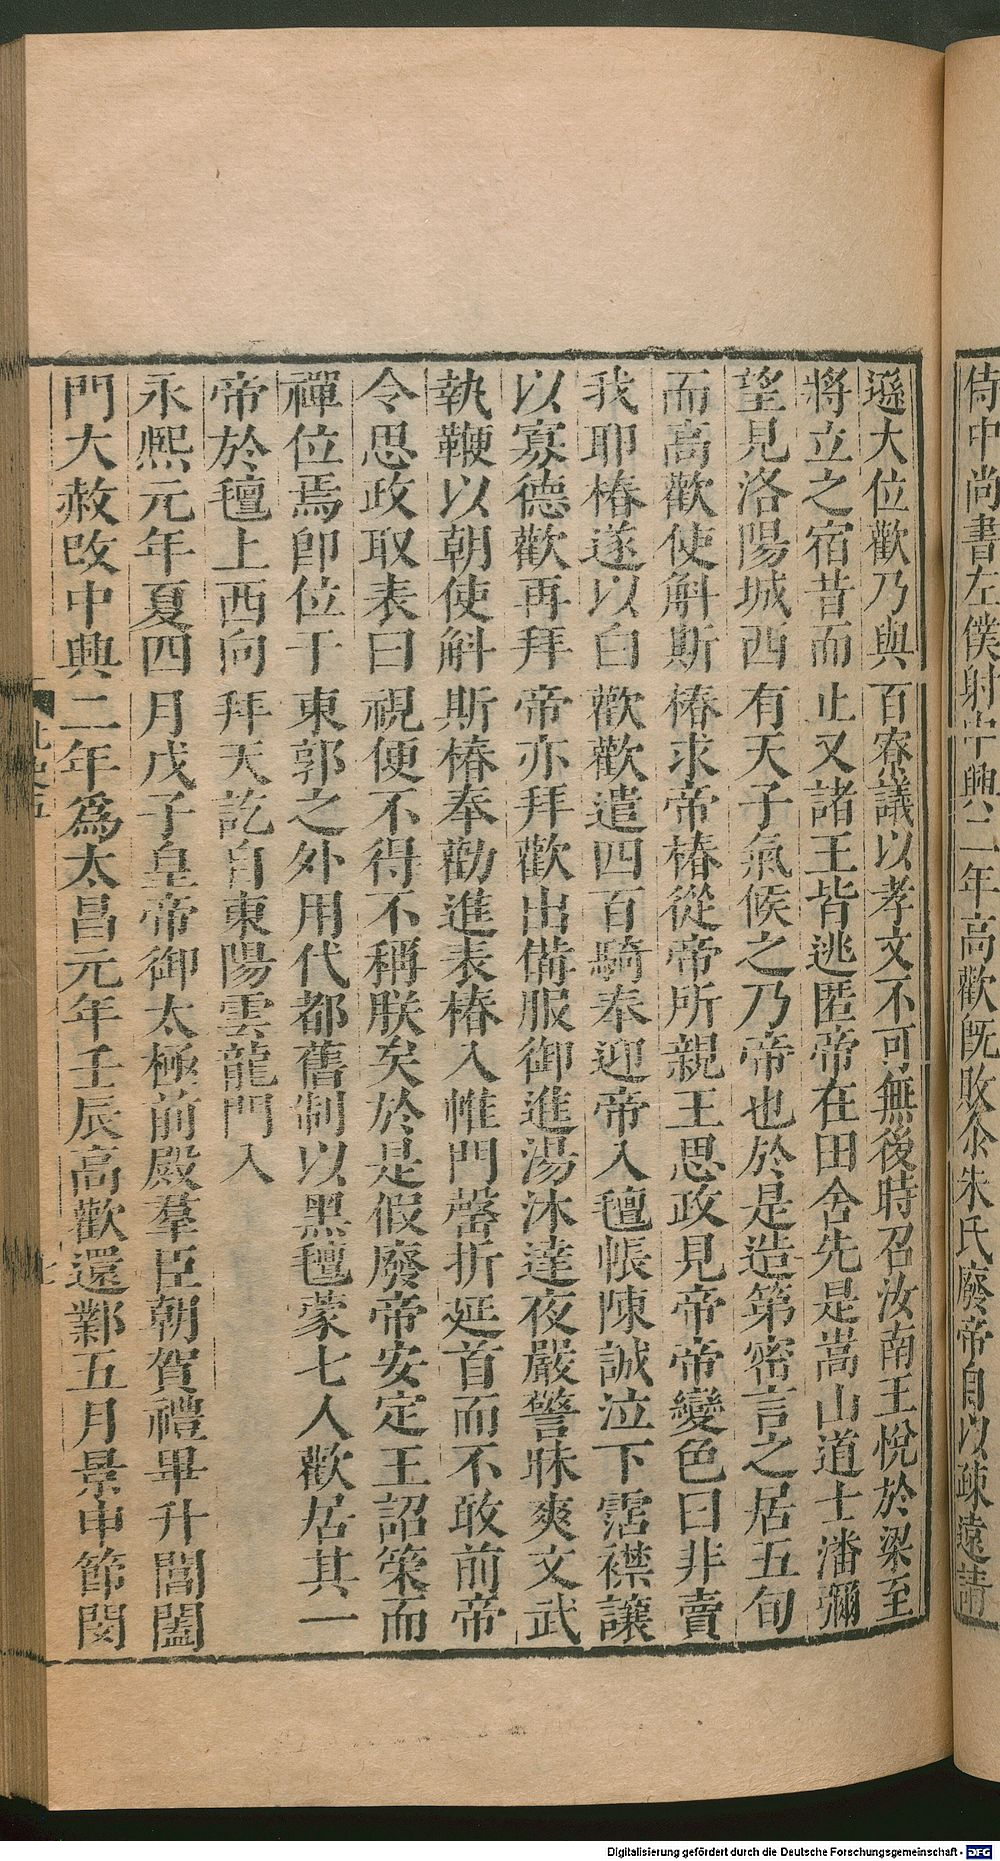 侍中尚書左僕射中興二年高歡既敗尒朱氏廢帝自以疎遠請
遜大位歡乃與百寮議以孝文不可無後時召汝南王悅於梁至
將立之宿昔而止又諸王皆逃匿帝在田舍先是嵩山道士潘彌
望見洛陽城西有天子氣候之乃帝也於是造第密言之居五旬
而高歡使斛斯椿求帝椿從帝所親王思政見帝帝變色曰非賣
我耶椿遂以白歡歡遣四百騎奉迎帝入氊帳陳誠泣下霑襟讓
以寡德歡再拜帝亦拜歡出備服御進湯沐達夜嚴警昧爽文武
執鞭以朝使斛斯椿奉勸進表椿入帷門罄折延首而不敢前帝
令思政取表曰視便不得不稱朕矣於是假廢帝安定王詔策而
禪位焉卽位于東郭之外用代都舊制以黑氊蒙七人歡居其一
帝於氊上西向拜天訖自東陽雲龍門入
永熙元年夏四月戊子皇帝御太極前殿羣臣朝賀禮畢升閶闔
門大赦改中興二年爲太昌元年壬辰高歡還鄴五月景申節閔
Digitalisierung gefördert durch die Deutsche Forschungsgemeinschaft - DFG